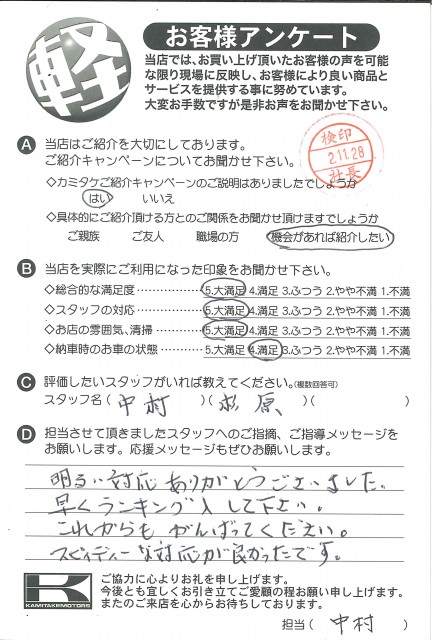 軽
お客様アンケート
当店では、お買い上げ頂いたお客様の声を可能
な限り現場に反映し、お客様により良い商品と
サービスを提供する事に努めています。
大変お手数ですが是非お声をお聞かせ下さい。
A 当店はご紹介を大切にしております。
ご紹介キャンペーンについてお聞かせ下さい。
検印
2.11.28
社長
◇カミタケご紹介キャンペーンのご説明はありましたでしょうか
はい いいえ
◇具体的にご紹介頂ける方とのご関係をお聞かせ頂けますでしょうか
ご親族 ご友人 職場の方 機会があれば紹介したい
B 当店を実際にご利用になった印象をお聞かせ下さい。
◇総合的な満足度……………5.大満足 4.満足 3.ふつう 2.やや不満 1.不満
◇スタッフの対応……………5.大満足 4.満足 3.ふつう 2.やや不満 1.不満
◇お店の雰囲気、清掃………5.大満足 4.満足 3.ふつう 2.やや不満 1.不満
◇納車時のお車の状態………5.大満足 4.満足 3.ふつう 2.やや不満 1.不満
C 評価したいスタッフがいれば教えてください。(複数回答可)
スタッフ名(中村)(杉原)( )
D 担当させて頂きましたスタッフへのご指摘、ご指導メッセージを
お願いします。応援メッセージもぜひお願いします。
明るい対応ありがとうございました。
早くランキング入して下さい。
これからもがんばってください。
スピィディーな対応が良かったです。
K
KAMITAKEMOTORS
ご協力に心よりお礼を申し上げます。
今後とも宜しくお引き立てご愛顧の程お願い申し上げます。
またのご来店を心からお待ちしております。
担当(中村)